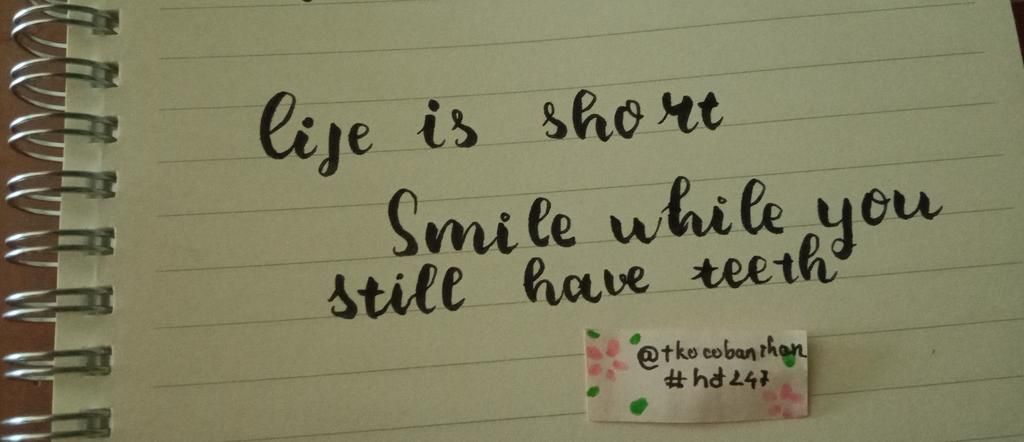 life is short
Smile while you
still have teeth
@tkocobanthan
#hdt247